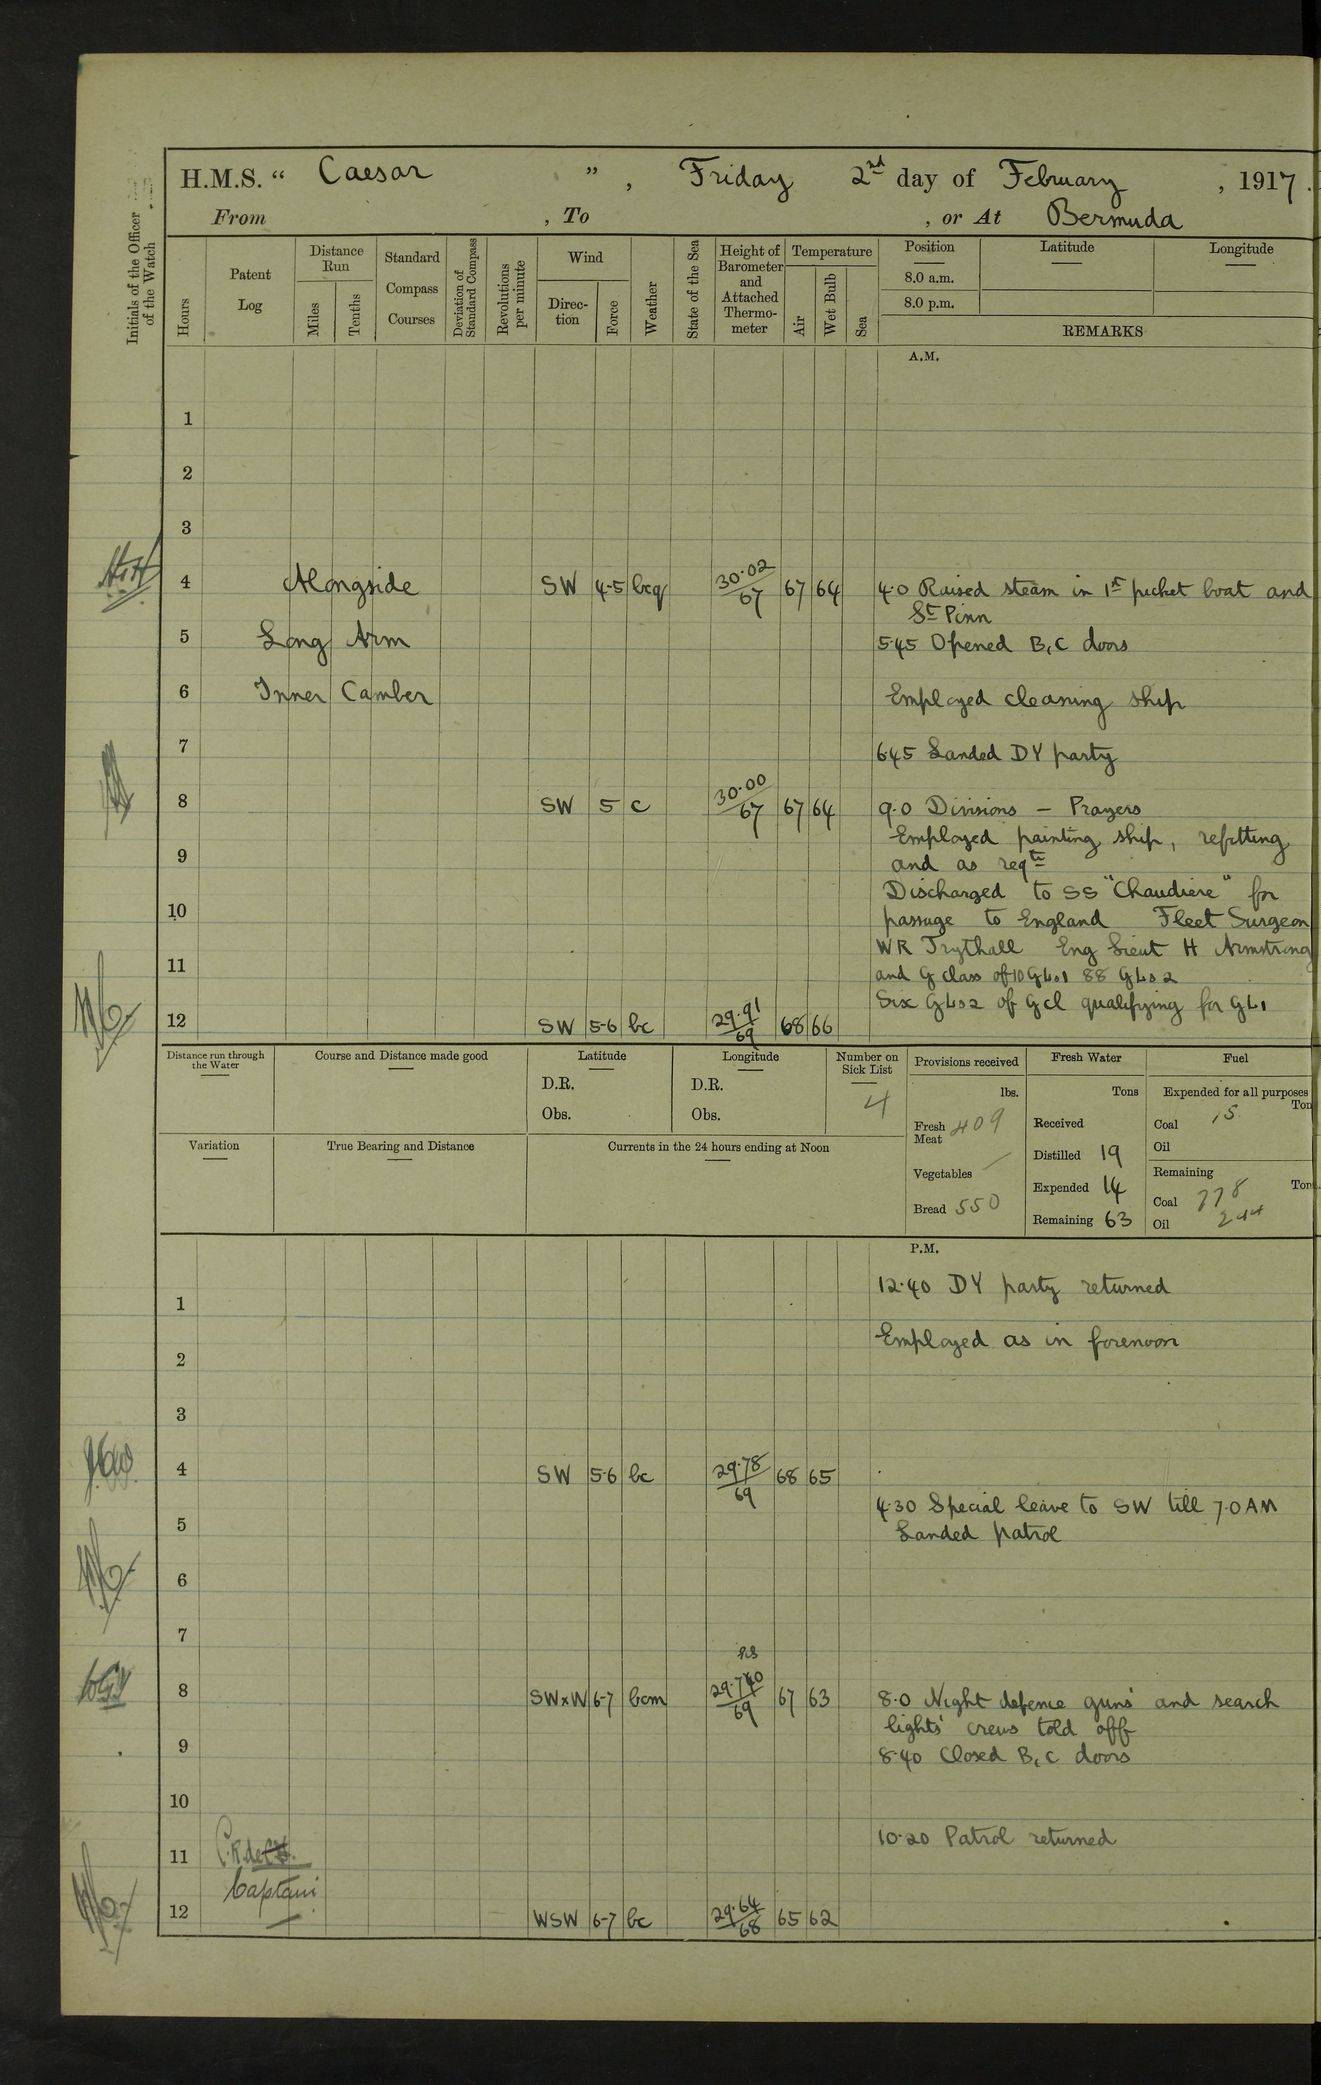 H.M.S. “ Caesar ” , Friday 2nd day of February , 1917.
From , To , or At Bermuda
Initials of the Officer of the Watch
Hours
Patent Log
Distance Run
Miles
Tenths
Standard Compass Courses
Deviation of Standard Compass
Revolutions per minute
Wind
Direc-tion
Force
Weather
State of the Sea
Height of Barometer and Attached Thermo-meter
Temperature
Air
Wet Bulb
Sea
Position
Latitude
Longitude
8.0 a.m.
8.0 p.m.
REMARKS
A.M.
1
2
3
4 Alongside SW 4-5 bcq 30.02/67 67 64 4.0 Raised steam in 1st picket boat and
St Pinn
5 Long Arm 5.45 Opened B, C doors
6 Inner Camber Employed cleaning ship
7 6.45 Landed DY party
8 SW 5 c 30.00/67 67 64 9.0 Divisions – Prayers
Employed painting ship, refitting
9 and as reqte
Discharged to SS "Chaudiere" for
10 passage to England Fleet Surgeon
WR Trythall Eng Lieut H Armstrong
11 and G class of 10 GLs1 88 GLs2
Six GLs2 of G cl qualifying for GL1
12 SW 5-6 bc 29.91/69 68 66
Distance run through the Water
Course and Distance made good
Latitude
D.R.
Obs.
Longitude
D.R.
Obs.
Number on Sick List
4
Provisions received
lbs.
Fresh Meat 409
Vegetables —
Bread 550
Fresh Water
Tons
Received
Distilled 19
Expended 14
Remaining 63
Fuel
Expended for all purposes
Ton
Coal 15
Oil
Remaining
Tons.
Coal 778
Oil 244
Variation
True Bearing and Distance
Currents in the 24 hours ending at Noon
P.M.
12.40 DY party returned
1
Employed as in forenoon
2
3
4 SW 5-6 bc 29.78/69 68 65
4.30 Special leave to SW till 7.0 AM
5 Landed patrol
6
7
8 SWxW 6-7 bcm 29.740/69 67 63 8.0 Night defence guns' and search
lights' crews told off
9 8.40 Closed B, C doors
10
10.20 Patrol returned
11
Captain
12 WSW 6-7 bc 29.64/68 65 62